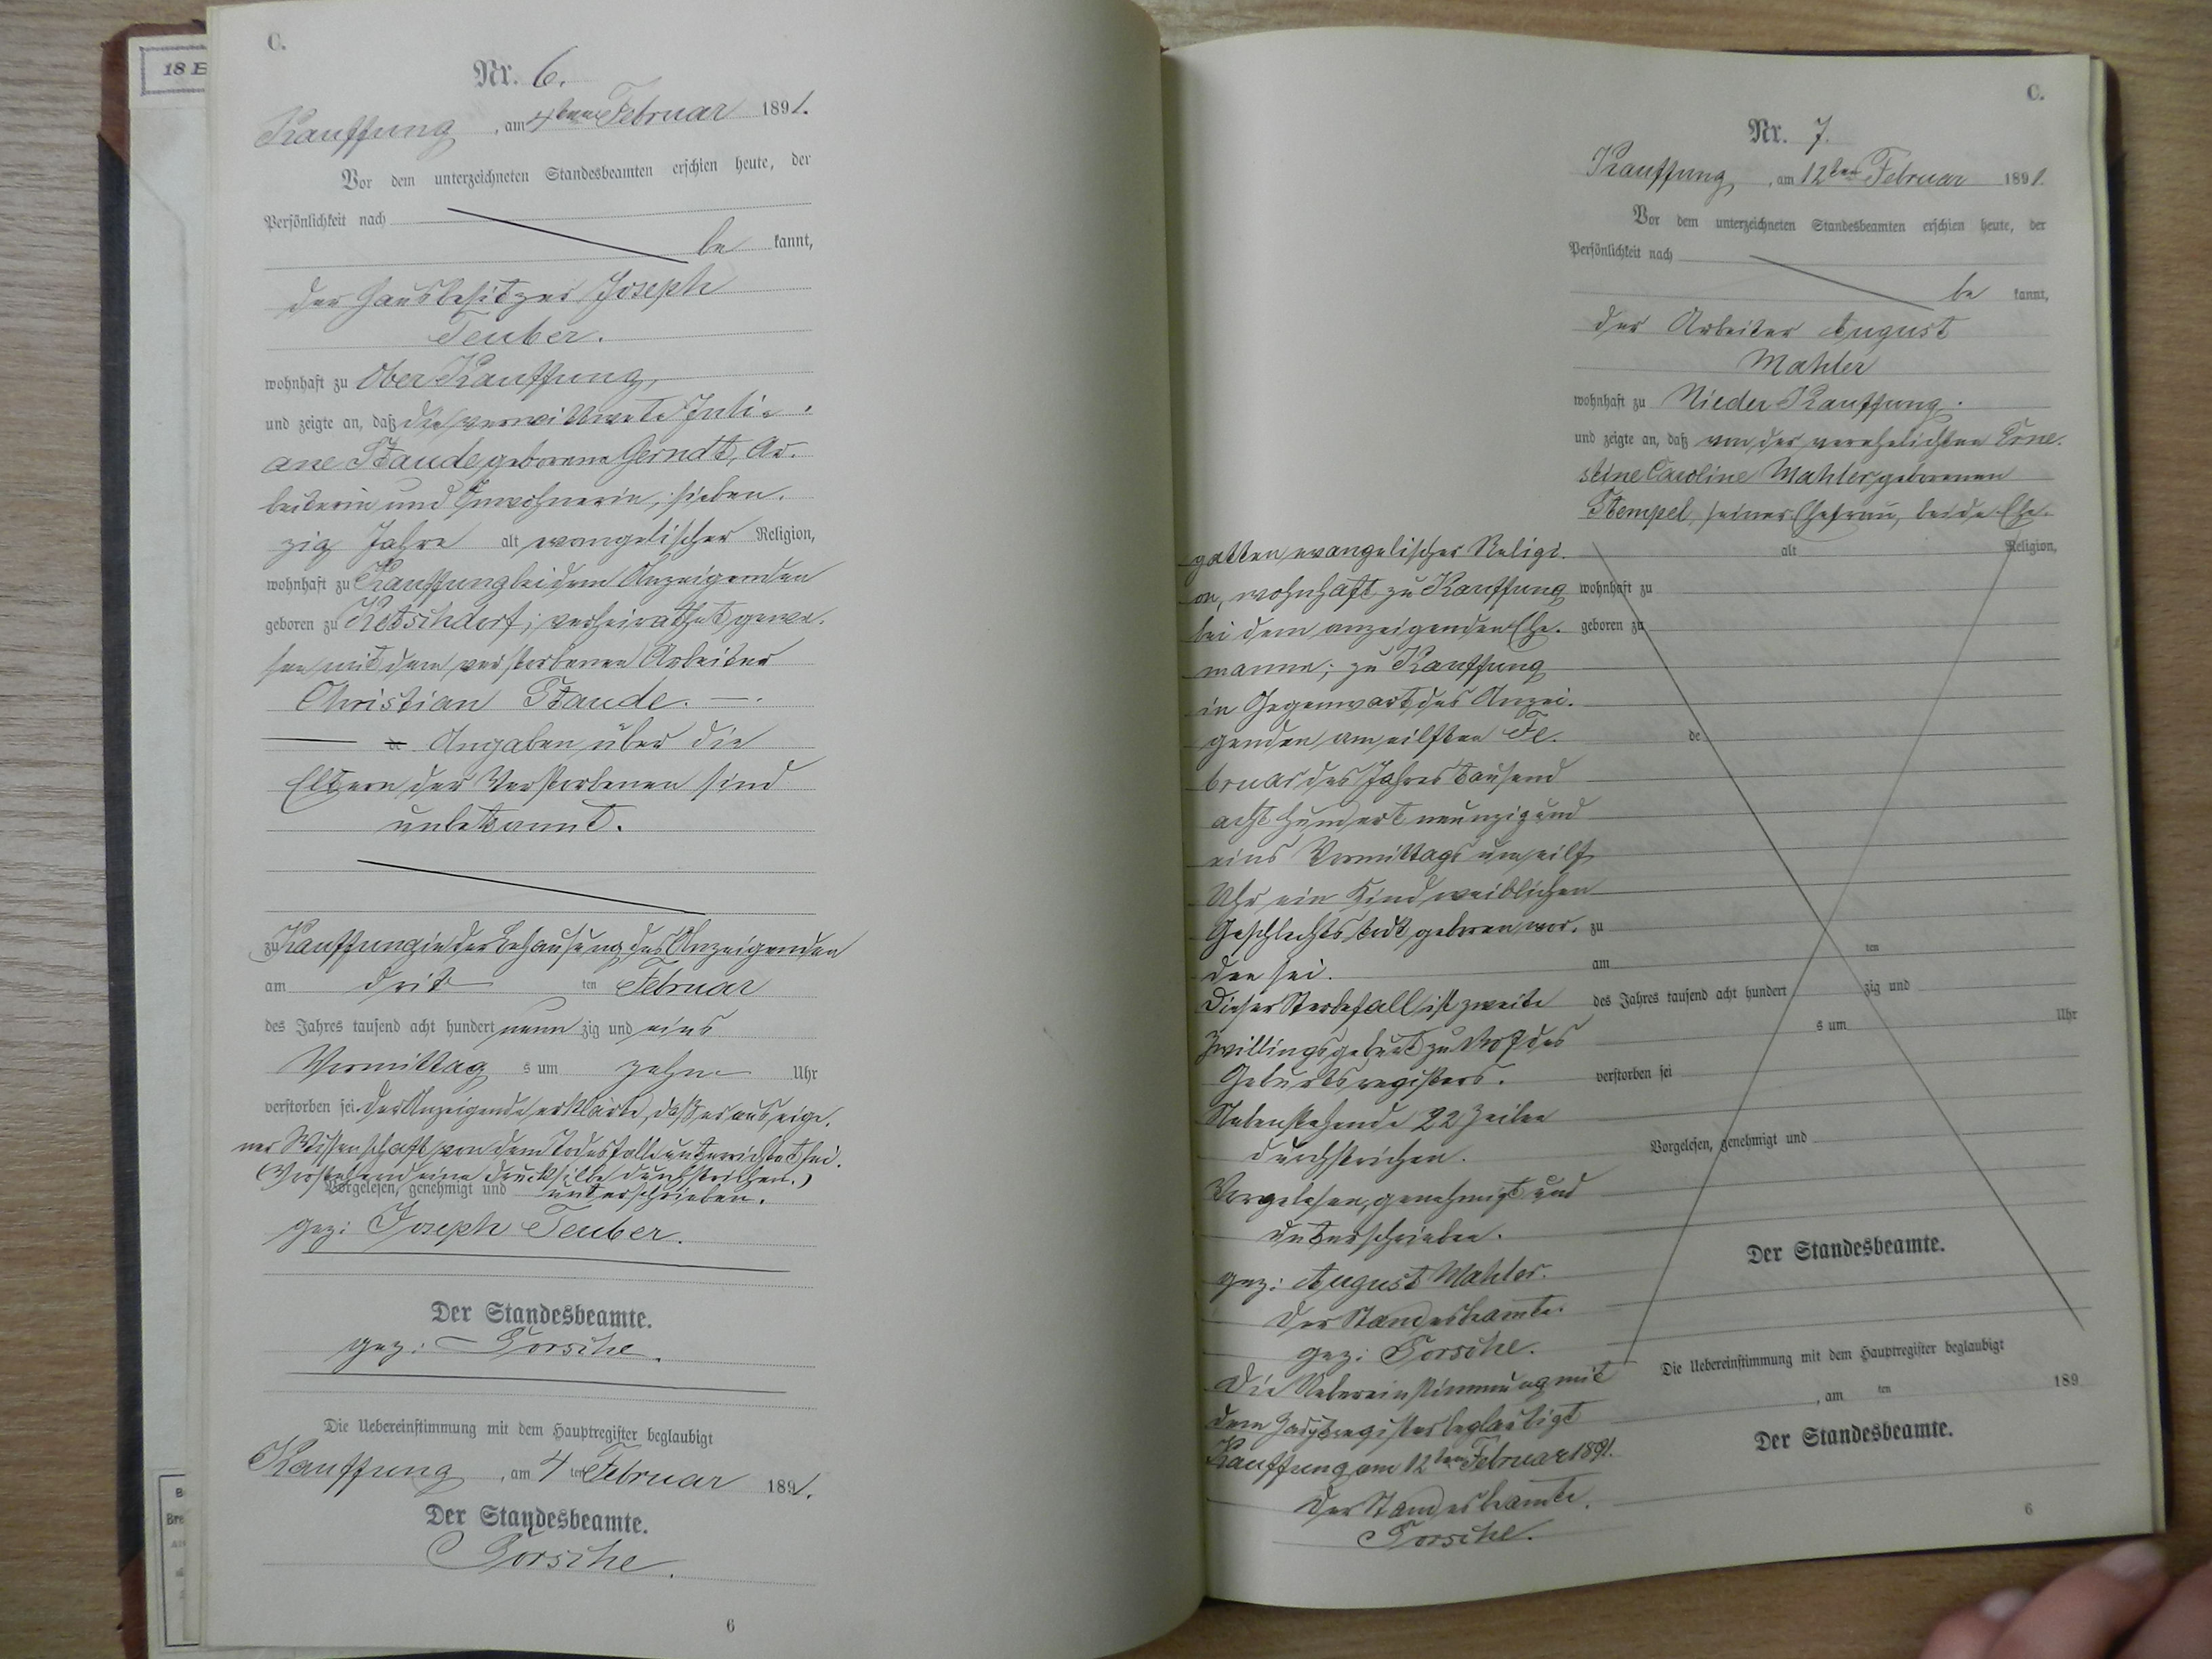 18 E
C.
Nr. 6.
Kauffung, am 4ten Februar 1891.
Vor dem unterzeichneten Standesbeamten erschien heute, der
Persönlichkeit nach
be kannt,
der Hausbesitzer Joseph
Teuber.
wohnhaft zu Ober Kauffung,
und zeigte an, daß die verwittwete Juli-
ane Staude geborene Gerndt, Ar-
beiterin und Inwohnerin, sieben-
zig Jahre alt evangelischer Religion,
wohnhaft zu Kauffung bei dem Anzeigenden
geboren zu Ketschdorf; verheirathet gewe-
sen mit dem verstorbenen Arbeiter
Christian Staude. —.
Angaben über die
Eltern der Verstorbenen sind
unbekannt.
zu Kauffung in der Behausung des Anzeigenden
am dritten Februar
des Jahres tausend acht hundert neun zig und eins
Vormittag s um zehn Uhr
verstorben sei. Der Anzeigende erklärte, daß er aus eige-
ner Wissenschaft von dem Todesfalle unterrichtet sei.
(Vorstehend eine Drucksilbe durchstrichen.)
Vorgelesen, genehmigt und unterschrieben.
gez: Joseph Teuber.
Der Standesbeamte.
gez:
Die Uebereinstimmung mit dem Hauptregister beglaubigt
Kauffung, am 4 ten Februar 1891.
Der Standesbeamte.
6
C.
Nr. 7.
Kauffung, am 12ten Februar 1891.
Vor dem unterzeichneten Standesbeamten erschien heute, der
Persönlichkeit nach
be kannt,
der Arbeiter August
Mahler
wohnhaft zu Nieder Kauffung.
und zeigte an, daß von der verehelichten Erne-
stine Caroline Mahler geborenen
Stempel, seiner Ehefrau, beide Ehe-
gatten evangelischer Religi-
on, wohnhaft zu Kauffung
bei dem anzeigenden Ehe-
manne; zu Kauffung
in Gegenwart des Anzei-
genden am eilften Fe-
bruar des Jahres tausend
acht hundert neunzig und
eins Vormittags um eilf
Uhr ein Kind weiblichen
Geschlechts todt geboren wor-
den sei.
Dieser Sterbefall ist zweite
Zwillingsgeburt zu No 7 des
Geburtsregisters.
Nebenstehende 22 Zeilen
durchstrichen.
Vorgelesen, genehmigt und
unterschrieben.
gez: August Mahler.
Der Standesbeamte.
gez:
Die Uebereinstimmung mit
dem Hauptregister beglaubigt
Kauffung am 12ten Februar 1891.
Der Standesbeamte.
alt Religion,
wohnhaft zu
geboren zu
de
zu
am ten
des Jahres tausend acht hundert zig und
s um Uhr
verstorben sei
Vorgelesen, genehmigt und
Der Standesbeamte.
Die Uebereinstimmung mit dem Hauptregister beglaubigt
, am ten 189
Der Standesbeamte.
6